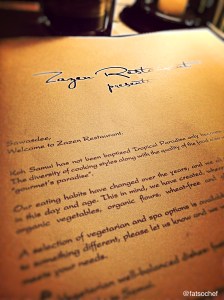 Zazen Restaurant
presents
Sawasdee,
Welcome to Zazen Restaurant.
Koh Samui has not been baptised Tropical Paradise only
The diversity of cooking styles along with the quality of the food
"gourmet's paradise".
Our eating habits have changed over the years, and we
in this day and age. This in mind, we have created, where
organic vegetables, organic flours, wheat-free
A selection of vegetarian and spa options is
to something different, please let us know and we
vegetarian well-balanced dishes
@fatsochef